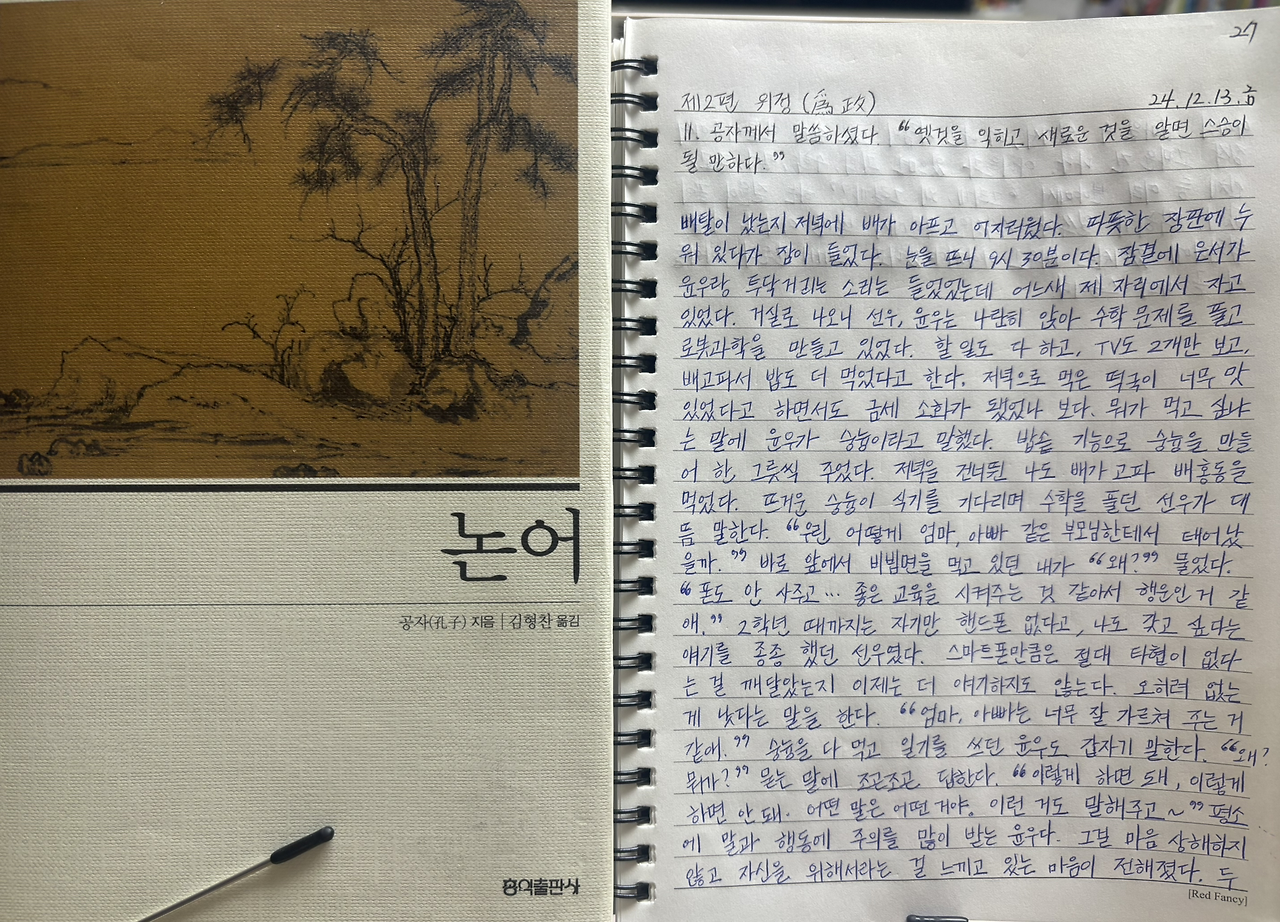 논어
공자(孔子) 지음 | 김형찬 옮김
홍익출판사
27
제2편 위정 (爲政) 24.12.13.금
11. 공자께서 말씀하셨다. "옛것을 익히고 새로운 것을 알면 스승이
될 만하다."
배탈이 났는지 저녁에 배가 아프고 어지러웠다. 따뜻한 장판에 누
워 있다가 잠이 들었다. 눈을 뜨니 9시 30분이다. 잠결에 은서가
윤우랑 투닥거리는 소리는 들었었는데 어느새 제 자리에서 자고
있었다. 거실로 나오니 선우, 윤우는 나란히 앉아 수학 문제를 풀고
로봇과학을 만들고 있었다. 할 일도 다 하고, TV도 2개만 보고,
배고파서 밥도 더 먹었다고 한다. 저녁으로 먹은 떡국이 너무 맛
있었다고 하면서도 금세 소화가 됐었나 보다. 뭐가 먹고 싶냐
는 말에 윤우가 숭늉이라고 말했다. 밥솥 기능으로 숭늉을 만들
어 한 그릇씩 주었다. 저녁을 건너뛴 나도 배가 고파 배홍동을
먹었다. 뜨거운 숭늉이 식기를 기다리며 수학을 풀던 선우가 대
뜸 말한다. "우린 어떻게 엄마, 아빠 같은 부모님한테서 태어났
을까." 바로 앞에서 비빔면을 먹고 있던 내가 "왜?" 물었다.
"폰도 안 사주고… 좋은 교육을 시켜주는 것 같아서 행운인 거 같
애." 2학년 때까지는 자기만 핸드폰 없다고, 나도 갖고 싶다는
얘기를 종종 했던 선우였다. 스마트폰만큼은 절대 타협이 없다
는 걸 깨달았는지 이제는 더 얘기하지도 않는다. 오히려 없는
게 낫다는 말을 한다. "엄마, 아빠는 너무 잘 가르쳐 주는 거
같애." 숭늉을 다 먹고 일기를 쓰던 윤우도 갑자기 말한다. "왜?
뭐가?" 묻는 말에 조곤조곤 답한다. "이렇게 하면 돼, 이렇게
하면 안 돼. 어떤 말은 어떤 거야. 이런 거도 말해주고~" 평소
에 말과 행동에 주의를 많이 받는 윤우다. 그걸 마음 상해하지
않고 자신을 위해서라는 걸 느끼고 있는 마음이 전해졌다. 두
[Red Fancy]